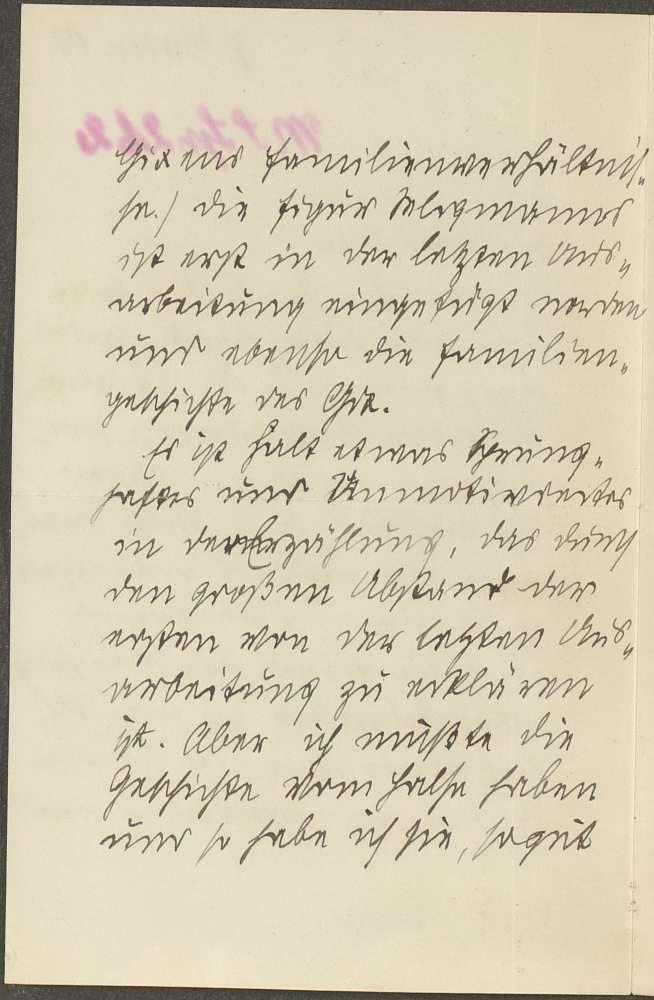 Gixens Familienverhältnis-
se.) Die Figur Selegmanns
ist erst in der letzten Aus-
arbeitung eingefügt worden
und ebenso die Familien-
geschichte des Gix.
Es ist halt etwas Sprung-
haftes und Unmotiviertes
in der Erzählung, das durch
den großen Abstand der
ersten von der letzten Aus-
arbeitung zu erklären
ist. Aber ich mußte die
Geschichte vom Halse haben
und so habe ich sie, so gut